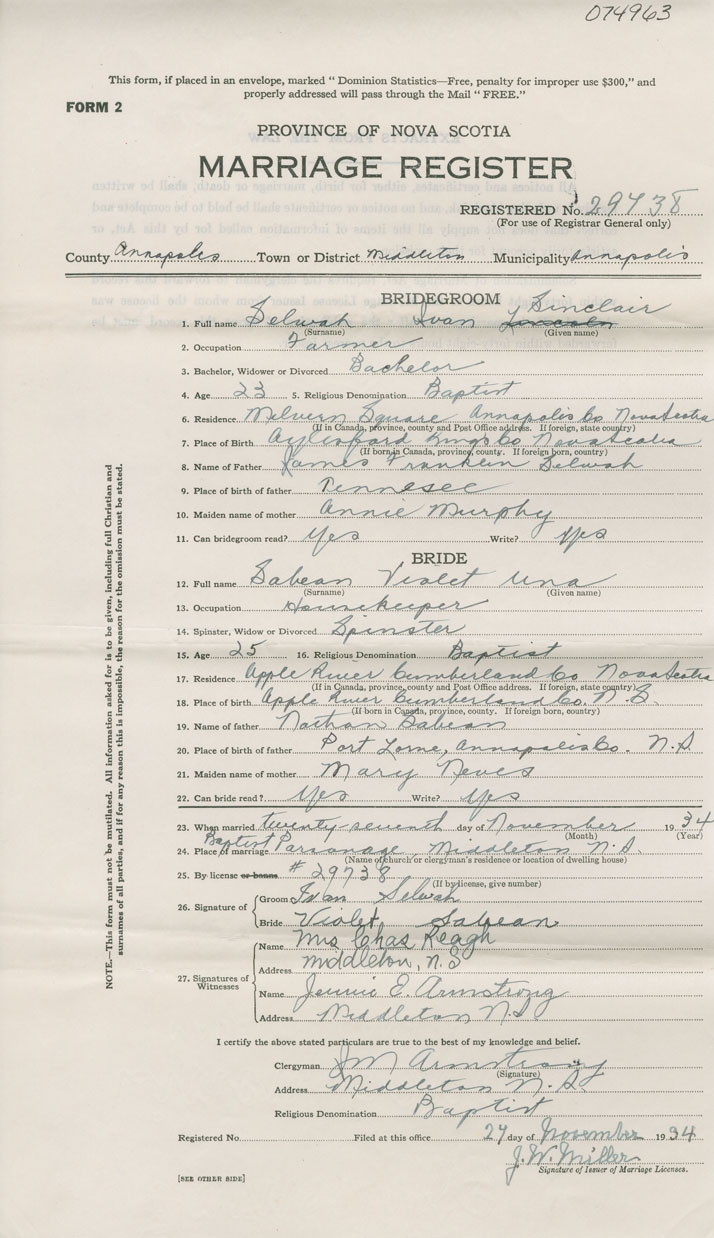 074963
This form, if placed in an envelope, marked “ Dominion Statistics—Free, penalty for improper use $300,” and
properly addressed will pass through the Mail “ FREE.”
FORM 2
PROVINCE OF NOVA SCOTIA
MARRIAGE REGISTER
REGISTERED No. 29738
(For use of Registrar General only)
County Annapolis Town or District Middleton Municipality Annapolis
BRIDEGROOM
1. Full name Selwah Ivan Lincoln Sinclair
(Surname) (Given name)
2. Occupation Farmer
3. Bachelor, Widower or Divorced Bachelor
4. Age 23 5. Religious Denomination Baptist
6. Residence Melvern Square Annapolis Co Nova Scotia
(If in Canada, province, county and Post Office address. If foreign, state country)
7. Place of Birth Aylesford Kings Co Nova Scotia
(If born in Canada, province, county. If foreign born, country)
8. Name of Father James Franklin Selwah
9. Place of birth of father Tennesee
10. Maiden name of mother Annie Murphy
11. Can bridegroom read? Yes Write? Yes
BRIDE
12. Full name Sabean Violet Una
(Surname) (Given name)
13. Occupation Housekeeper
14. Spinster, Widow or Divorced Spinster
15. Age 25 16. Religious Denomination Baptist
17. Residence Apple River Cumberland Co Nova Scotia
(If in Canada, province, county and Post Office address. If foreign, state country)
18. Place of birth Apple River Cumberland Co. N.S.
(If born in Canada, province, county. If foreign born, country)
19. Name of father Nathan Sabean
20. Place of birth of father Port Lorne, Annapolis Co. N.S
21. Maiden name of mother Mary Neves
22. Can bride read? Yes Write? Yes
23. When married twenty-seventh day of November 1934
(Month) (Year)
24. Place of marriage Baptist Parsonage, Middleton N.S.
(Name of church or clergyman's residence or location of dwelling house)
25. By license or banns # 29738
(If by license, give number)
26. Signature of
Groom Ivan Selwah
Bride Violet Sabean
27. Signatures of Witnesses
Name Mrs Chas Reagh
Address Middleton, N.S
Name Jennie E. Armstrong
Address Middleton N.S
I certify the above stated particulars are true to the best of my knowledge and belief.
Clergyman J M Armstrong
(Signature)
Address Middleton N.S.
Religious Denomination Baptist
Registered No. Filed at this office 27 day of November 1934
J. W. Miller
Signature of Issuer of Marriage Licenses.
[SEE OTHER SIDE]
NOTE.—This form must not be mutilated. All information asked for is to be given, including full Christian and
surnames of all parties, and if for any reason this is impossible, the reason for the omission must be stated.